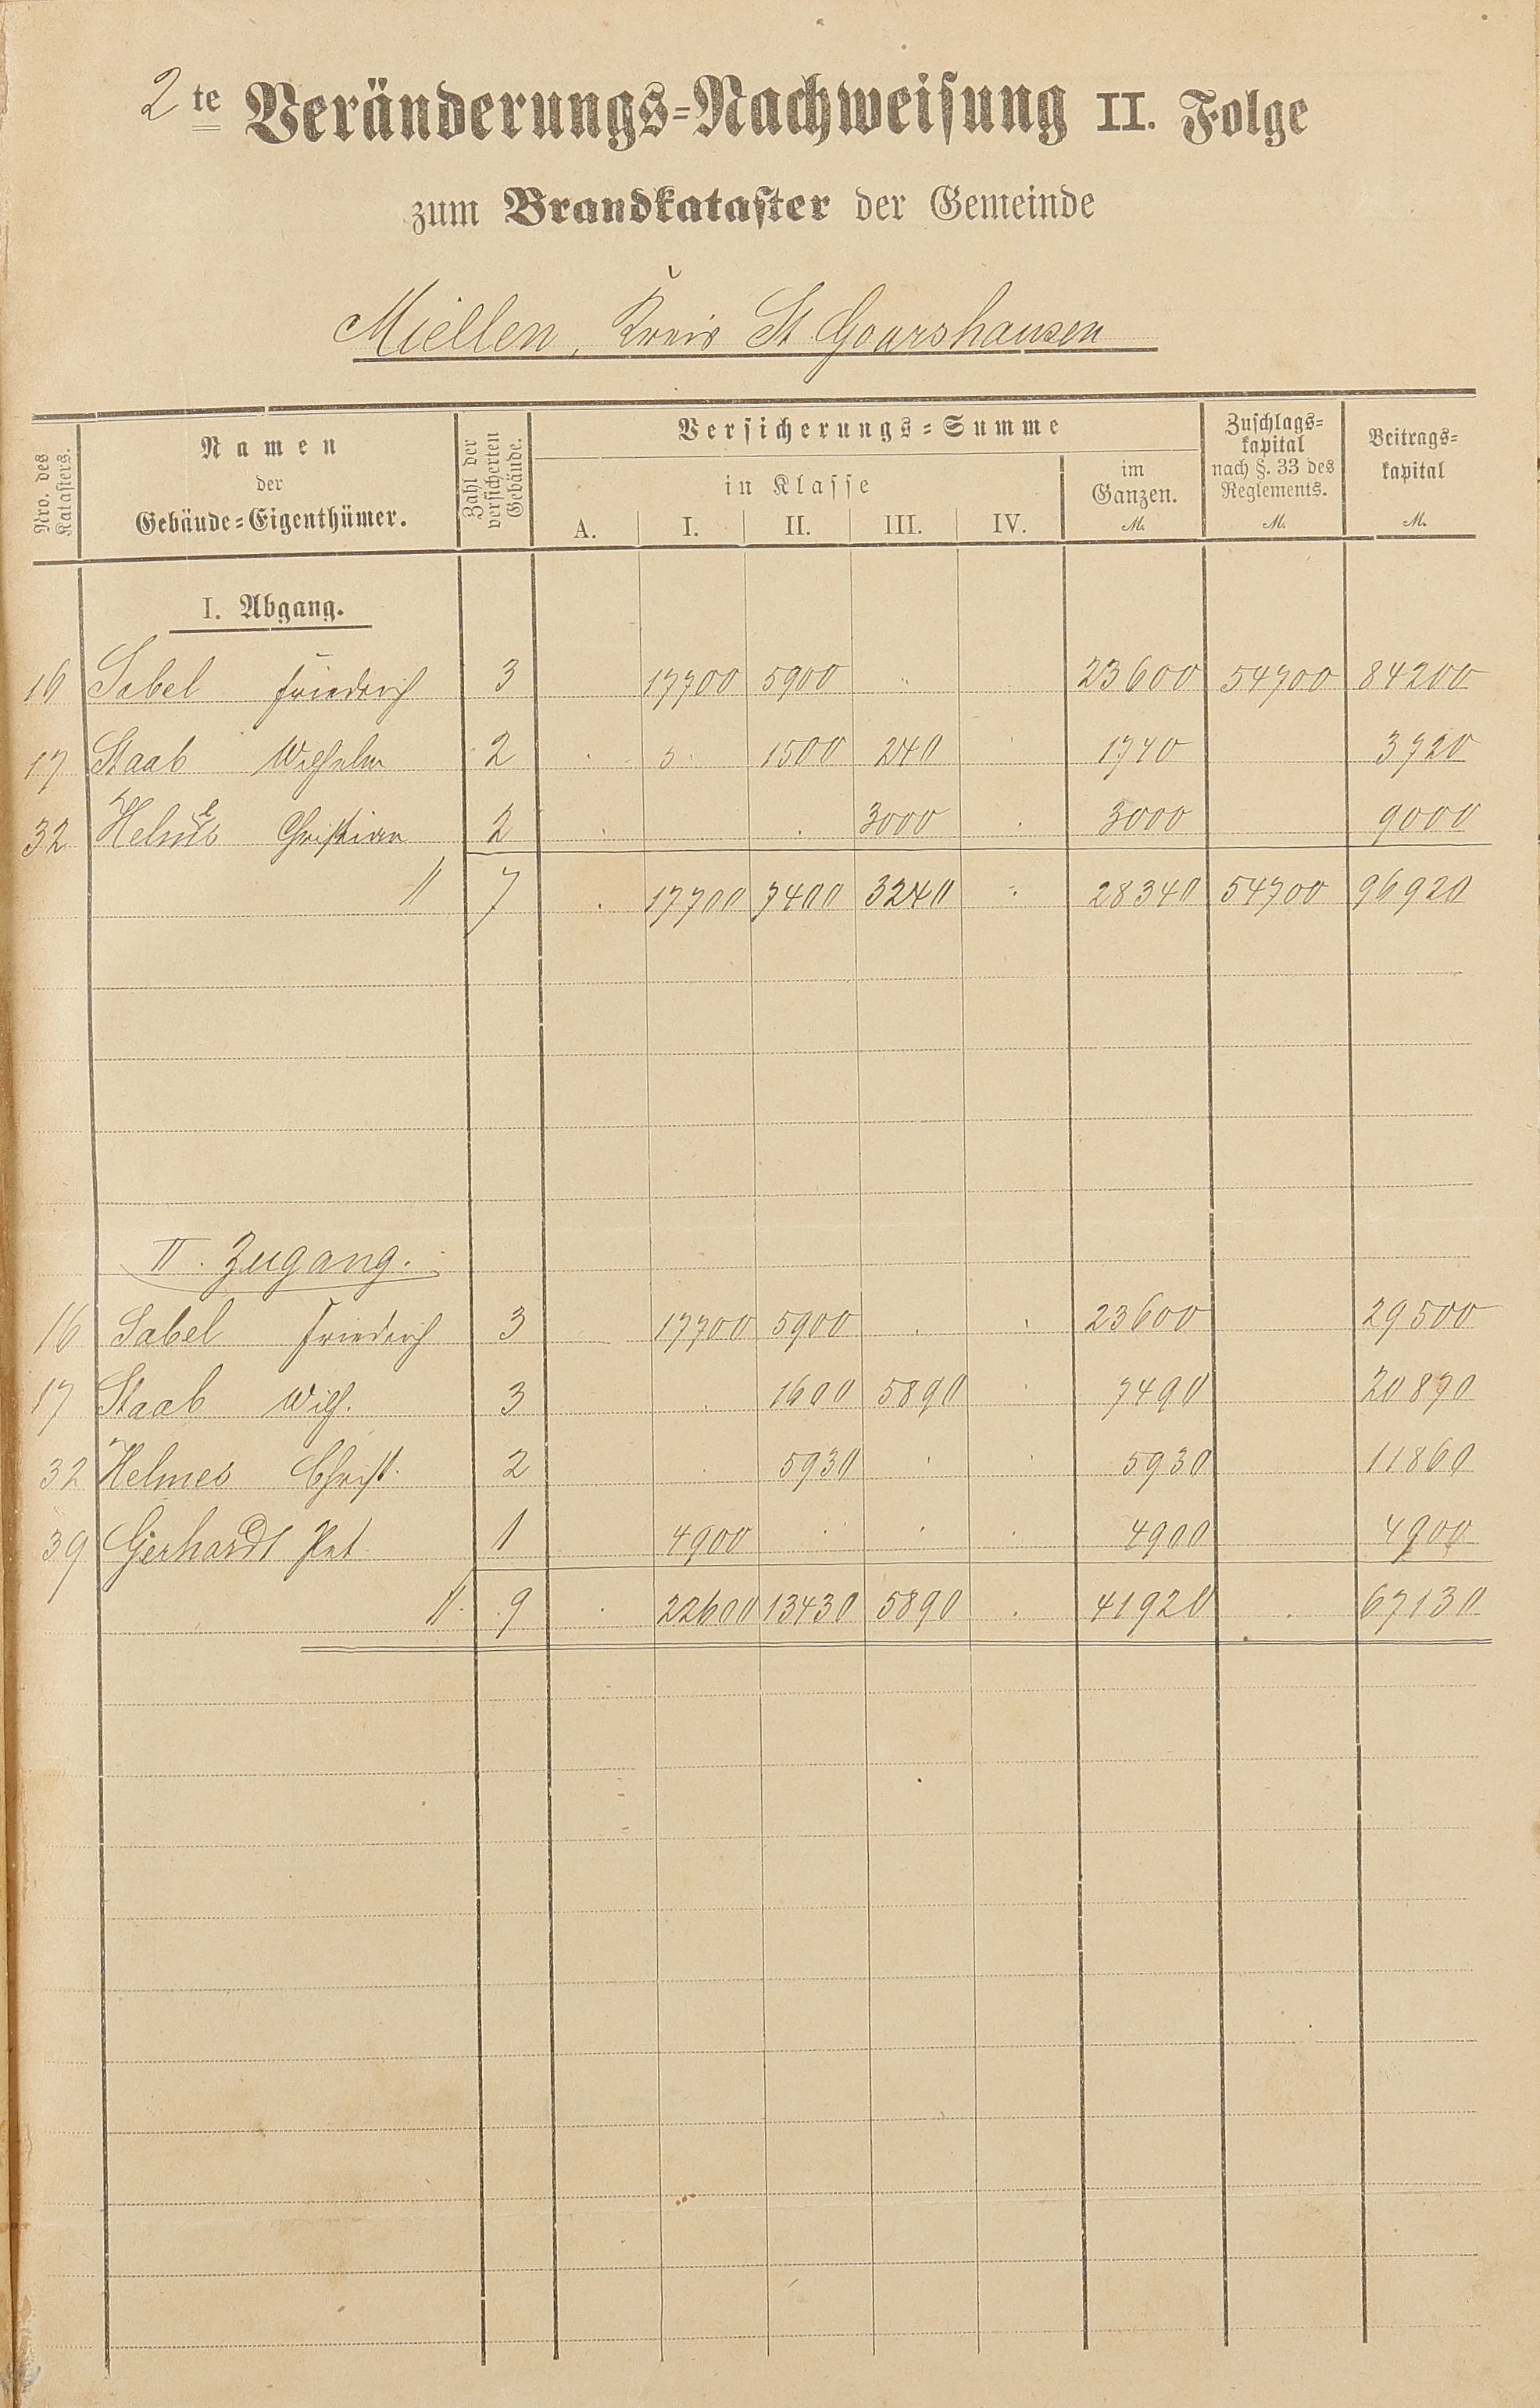 2te Veränderungs-Nachweisung II. Folge
zum Brandkataster der Gemeinde
Miellen, Kreis St Goarshausen
Nro. des Katasters.
Namen
der
Gebäude-Eigenthümer.
Zahl der versicherten Gebäude.
Versicherungs-Summe
in Klasse
A. I. II. III. IV.
im
Ganzen.
M.
Zuschlags-
kapital
nach §. 33 des
Reglements.
M.
Beitrags-
kapital
M.
I. Abgang.
16 Sabel Friedrich 3 17700 5900 23600 54700 84200
17 Staab Wilhelm 2 1500 240 1740 3720
32 Helmes Christian 2 3000 3000 9000
7 17700 7400 3240 28340 54700 96920
II. Zugang.
16 Sabel Friedrich 3 17700 5900 23600 29500
17 Staab Wilh. 3 1600 5890 7490 20870
32 Helmes Christ. 2 5930 5930 11860
39 Gerhardt Pet 1 4900 4900 4900
9 22600 13430 5890 41920 67130